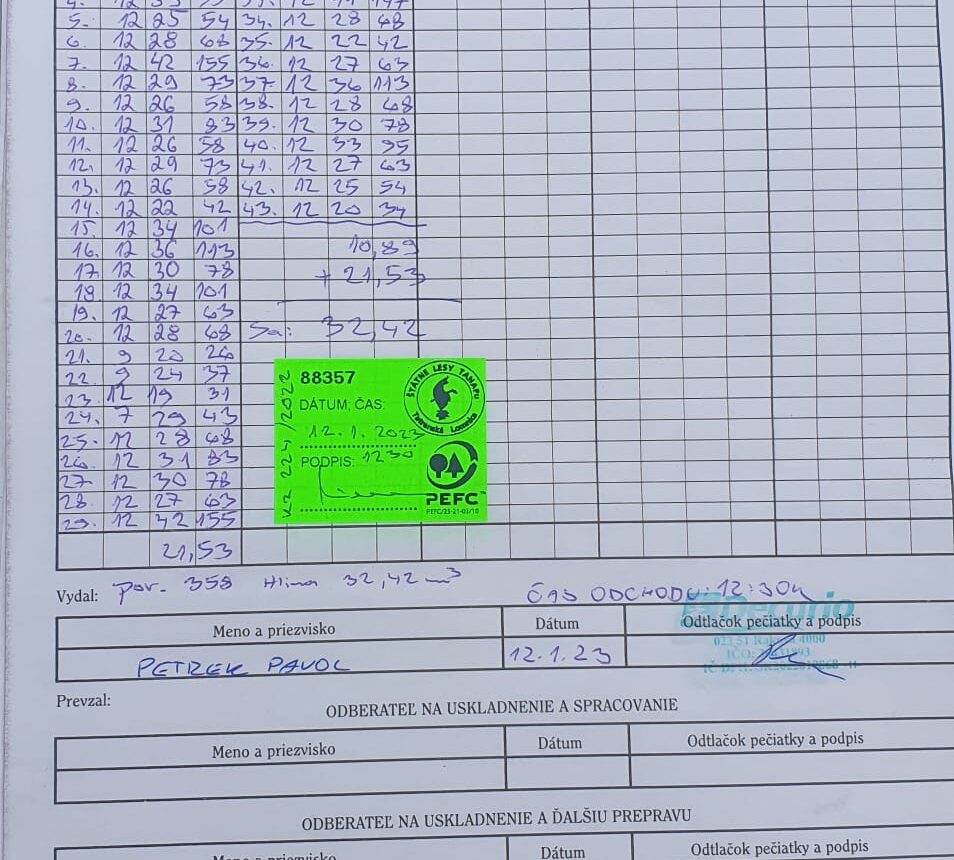 5. 12 25 54 34. 12 28 68
6. 12 28 68 35. 12 22 42
7. 12 42 155 36. 12 27 63
8. 12 29 73 37. 12 36 113
9. 12 26 58 38. 12 28 68
10. 12 31 83 39. 12 30 78
11. 12 26 58 40. 12 33 95
12. 12 29 73 41. 12 27 63
13. 12 26 58 42. 12 25 54
14. 12 22 42 43. 12 20 34
15. 12 34 101
16. 12 36 113 10,89
17. 12 30 78 + 21,53
18. 12 34 101
19. 12 27 63
20. 12 28 68 Sa: 32,42
21. 9 20 26
22. 9 24 37
23. 12 19 31
24. 7 29 43
25. 12 28 68
26. 12 31 83
27. 12 30 78
28. 12 27 63
29. 12 42 155
21,53
88357
DÁTUM, ČAS:
12.1.2023
PODPIS: 1230
224/2022
ŠTÁTNE LESY TANAPU
Tatranská Lomnica
PEFC™
PEFC/23-21-03/10
Vydal: por. 358 Hlina 32,42 m³
ČAS ODCHODU: 12:30h
Decurio
Meno a priezvisko Dátum Odtlačok pečiatky a podpis
023 51 4000
IČO:
PETREK PAVOL 12.1.23
Prevzal:
ODBERATEĽ NA USKLADNENIE A SPRACOVANIE
Meno a priezvisko Dátum Odtlačok pečiatky a podpis
ODBERATEĽ NA USKLADNENIE A ĎALŠIU PREPRAVU
Meno a priezvisko Dátum Odtlačok pečiatky a podpis